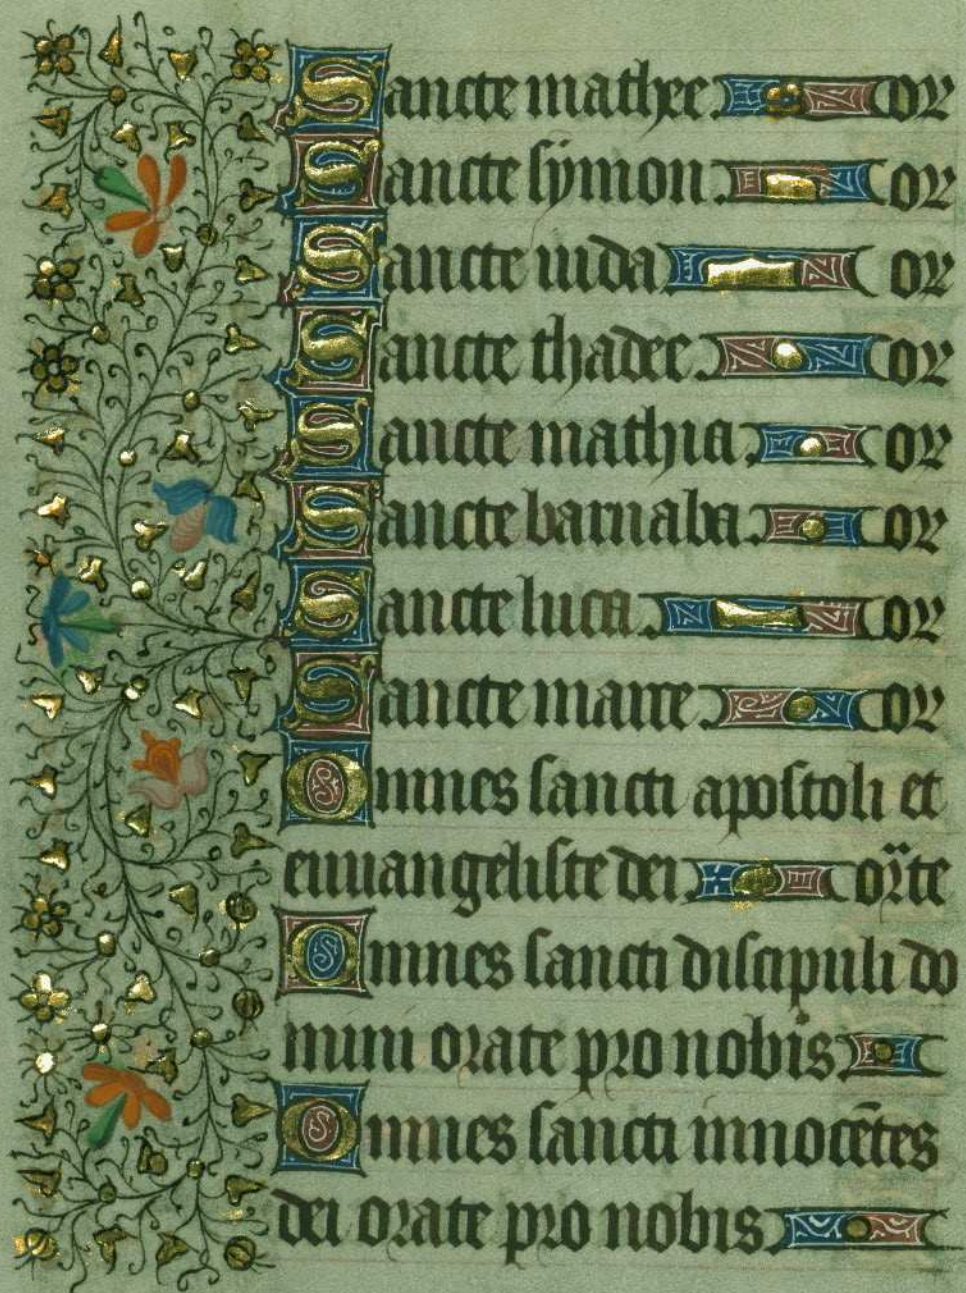 Sancte mathee or
Sancte symon or
Sancte iuda or
Sancte thadee or
Sancte mathia or
Sancte barnaba or
Sancte luca or
Sancte marce or
Omnes sancti apostoli et
euuangeliste dei orate
Omnes sancti discipuli do
mini orate pro nobis
Omnes sancti innocētes
dei orate pro nobis